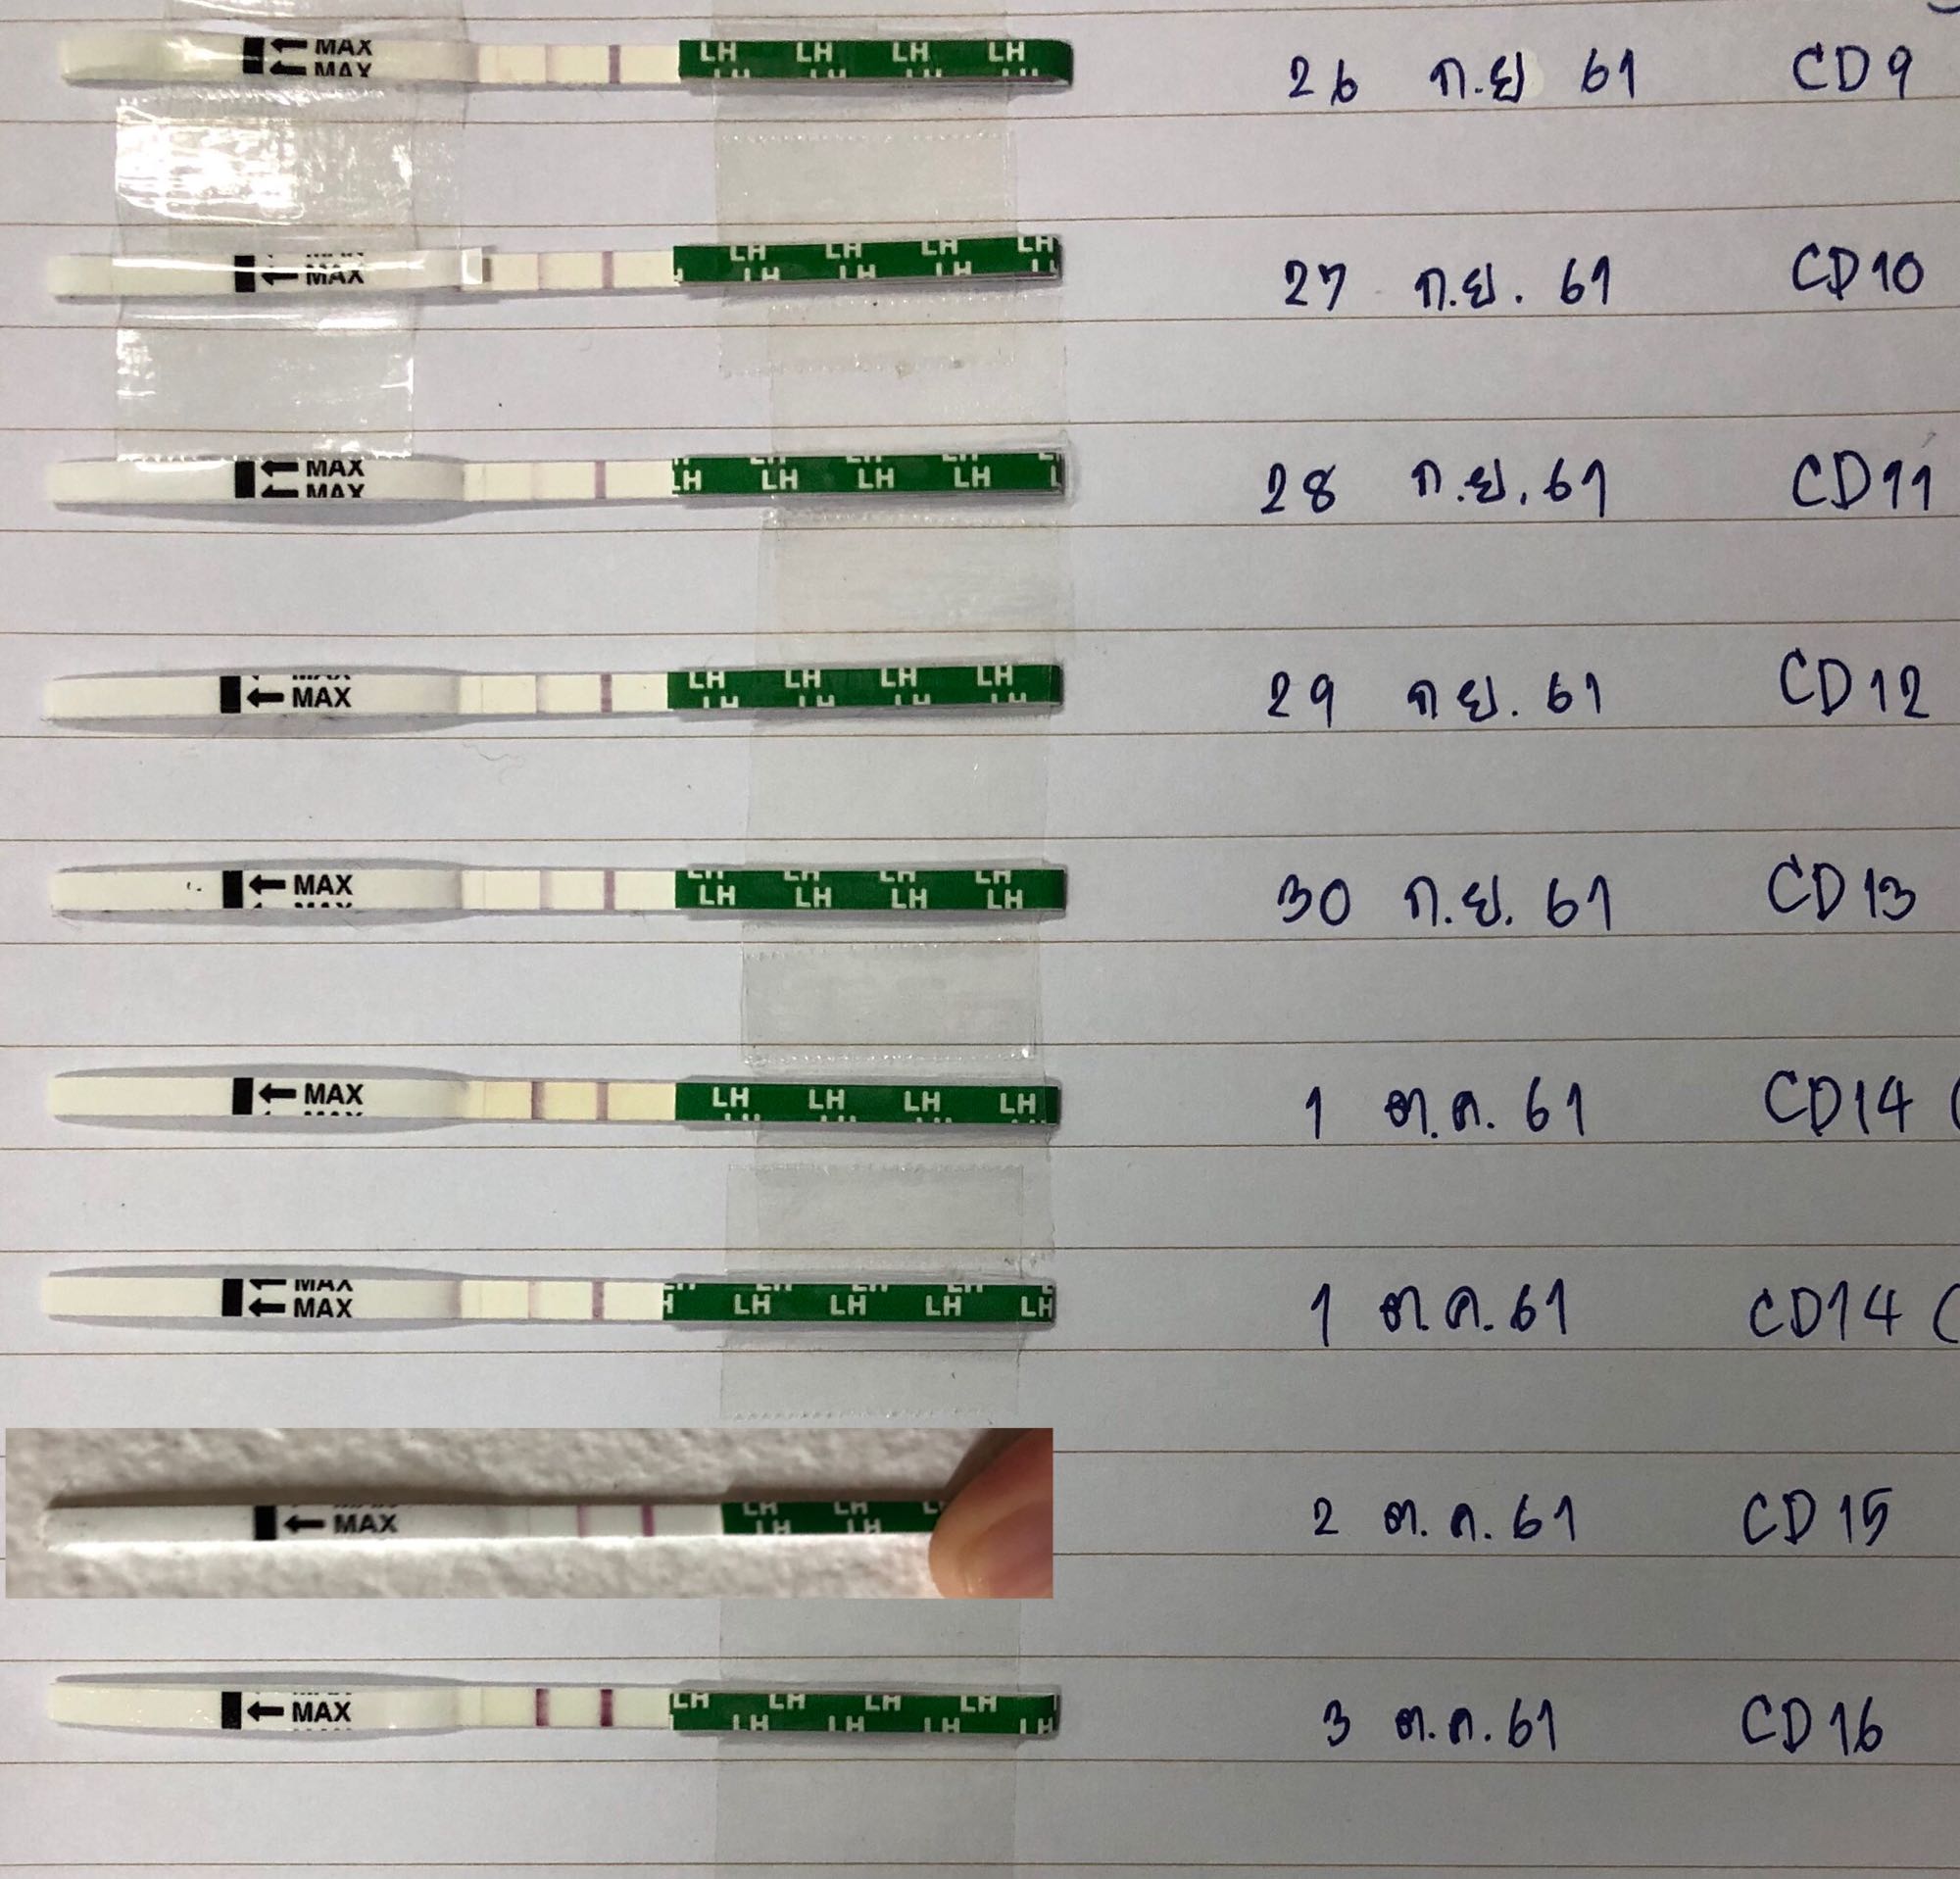 MAX LH LH LH LH 26 ก.ย 61 CD9
MAX LH LH
MAX LH LH LH LH 27 ก.ย. 61 CD10
LH LH LH
MAX 28 ก.ย. 61 CD11
MAX LH LH LH LH
MAX LH LH LH LH 29 ก.ย. 61 CD12
MAX LH LH LH LH 30 ก.ย. 61 CD13
MAX LH LH LH LH 1 ต.ค. 61 CD14 (
MAX
MAX LH LH LH LH 1 ต.ค. 61 CD14 (
MAX LH LH L 2 ต.ค. 61 CD15
LH LH
MAX LH LH LH LH 3 ต.ค. 61 CD16
LH LH LH LH